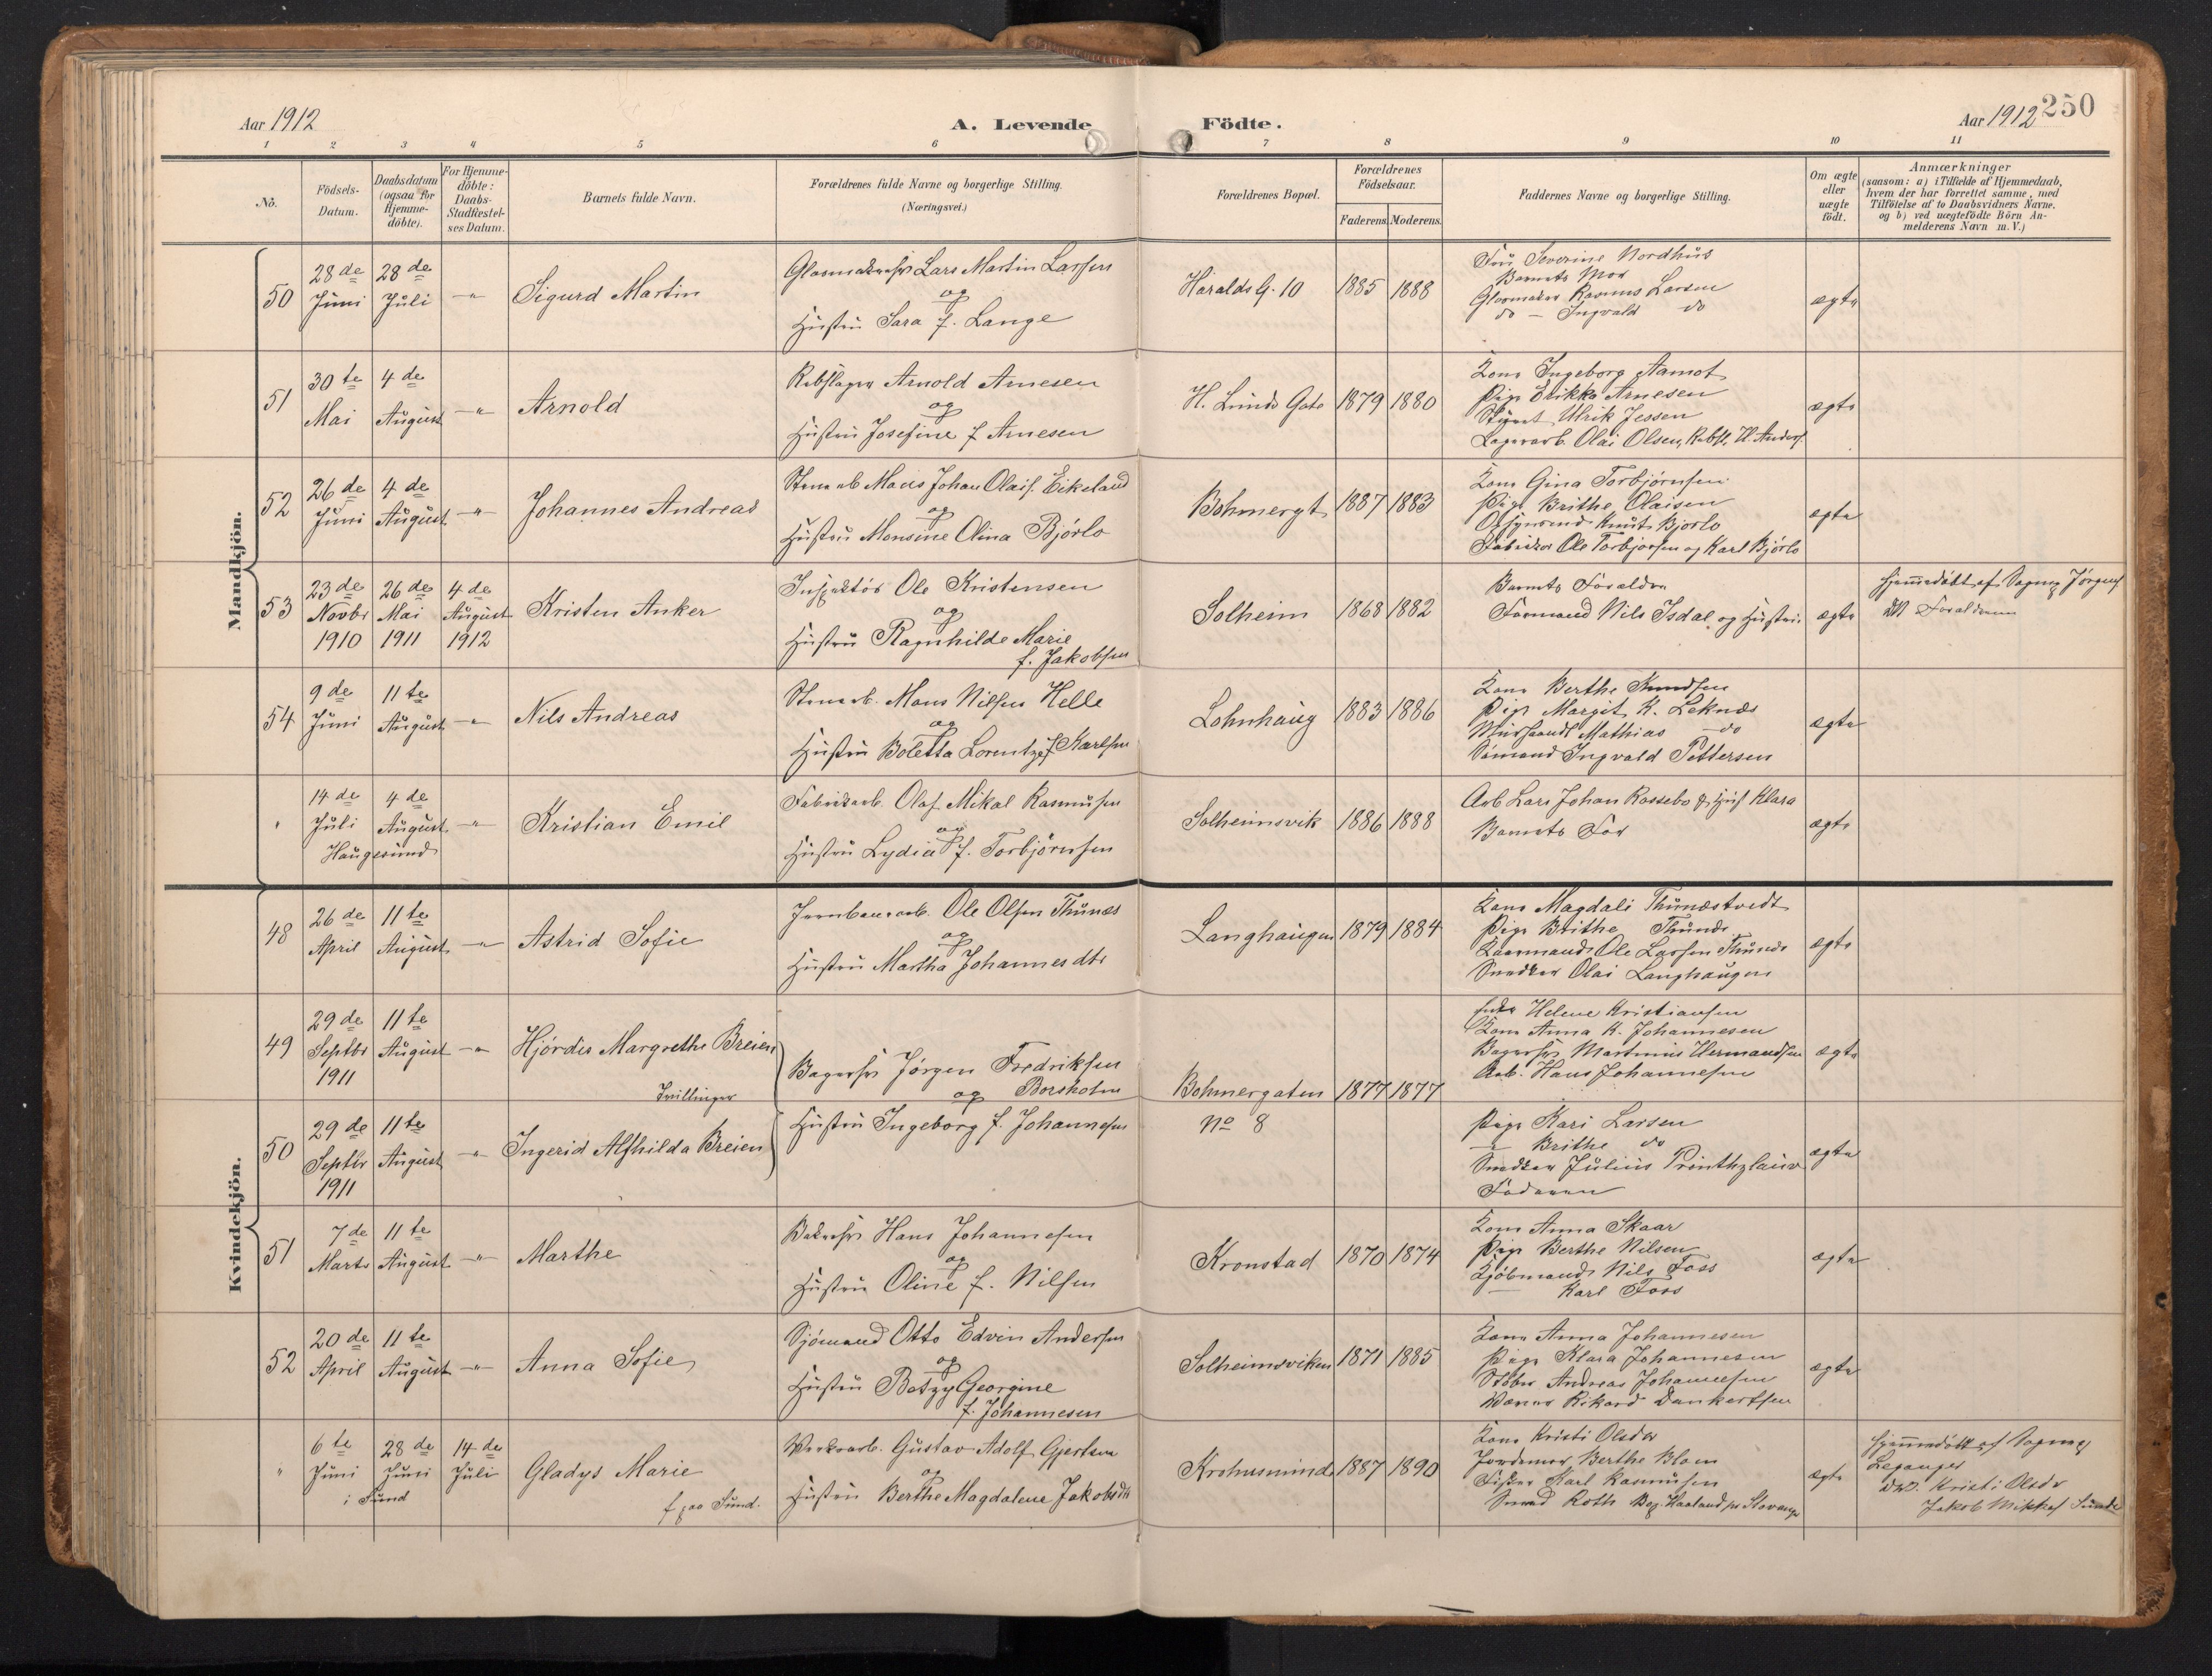 Aar 1912
A. Levende
Födte.
Aar 1912
250
1 2 3 4 5 6 7 8 9 10 11
No.
Födsels-
Datum.
Daabsdatum
(ogsaa for
Hjemme-
döbte).
For Hjemme-
döbte:
Daabs-
Stadfæstel-
ses Datum.
Barnets fulde Navn.
Forældrenes fulde Navne og borgerlige Stilling.
(Næringsvei.)
Forældrenes Bopæl.
Forældrenes
Födselsaar.
Faderens. Moderens.
Faddernes Navne og borgerlige Stilling.
Om ægte
eller
uægte
födt.
Anmærkninger
(saasom: a) i Tilfælde af Hjemmedaab,
hvem der har forrettet samme, med
Tilföielse af to Daabsvidners Navne,
og b) ved uægtefödte Börn An-
melderens Navn m. V.)
Mandkjön.
50
28de
Juni
28de
Juli
-"-
Sigurd Martin
Lars Martin Larssen
og
Hustru Sara f. Lange
Haralds G. 10
1885
1888
Fru Severine Nordhus
Barnets Mor
Glasmester Rasmus Larsen
do - Ingvald do
ægte
51
30te
Mai
4de
August
-"-
Arnold
Rebslager Arnold Arnesen
og
Hustru Josefine f Arnesen
H. Lunds Gate
1879
1880
Kone Ingeborg Aamot
Pige Erikka Arnesen
Ulrik Jessen
Lagerarb. Olai Olsen,
ægte
52
26de
Juni
4de
August
-"-
Johannes Andreas
Johan Olais. Eikeland
og
Hustru Monsine Olina Bjórlo
Bohmergt
1887
1883
Kone Gina Torbjórnsen
Pige Brithe Olaisen
Knut Bjorlo
Ole Torbjornsen og Karl Bjórlo
ægte
53
23de
Novbr
1910
26de
Mai
1911
4de
August
1912
Kristen Anker
Inspektór Ole Kristensen
og
Hustru Ragnhilde Marie
f. Jakobsen
Solheim
1868
1882
Barnets Foraldre
Formand Nils Isdal og Hustru
ægte
Hjemmedóbt af Sognep Jórgens
DV Foraldrene
54
9de
Juni
11te
August
-"-
Nils Andreas
Stenarb. Mons Nilsen Helle
og
Hustru Boletta Lorentze f Karlsen
Lohnhaug
1883
1886
Kone Berthe Knudsen
Pige Margit K. Leknes
Mathias do
Sómand Ingvald Pettersen
ægte
"
14de
Juli
Haugesund
4de
August
-"-
Kristian Emil
Fabrikarb. Olaf Mikal Rasmussen
og
Hustru Lydia f. Torbjórnsen
Solheimsvik
1886
1888
Arb Lars Johan Rossebo & Hus Klara
Barnets Far
ægte
Kvindekjön.
48
26de
April
11te
August
-"-
Astrid Sofie
Jernbanearb. Ole Olsen Thunes
og
Hustru Martha Johannesdtr
Langhaugen
1879
1884
Kone Magdali Thunestvedt
Pige Brithe Thunes
Ole Larssen Thunes
Snedker Olai Langhaugen
ægte
49
29de
Septbr
1911
11te
August
-"-
Hjórdis Margrethe Breien
Tvillinger
Bagersv Jórgen Fredriksen
og Borsholm
Hustru Ingeborg f. Johannesen
Bohmergaten
No 8
1877
1877
Enke Helene Kristiansen
Kone Anna K. Johannesen
Bagersv Martinus Hermandsen
Arb. Hans Johannesen
ægte
50
29de
Septbr
1911
11te
August
-"-
Ingerid Alfhilda Breien
Pige Kari Larsen
- Brithe do
Snedker Julius Printhzlau
Faderen
ægte
51
7de
Marts
11te
August
-"-
Marthe
Hans Johannesen
og
Hustru Oline f. Nilsen
Kronstad
1870
1874
Kone Anna Skaar
Pige Berthe Nilsen
Kjóbmand Nils Foss
— Karl Foss
ægte
52
20de
April
11te
August
-"-
Anna Sofie
Sjómand Otto Edvin Andersen
og
Hustru Betzy Georgine
f. Johannesen
Solheimsviken
1871
1885
Kone Anna Johannesen
Pige Klara Johannesen
Stóber Andreas Johannesen
Rikard Dankertsen
ægte
"
6te
Juni
i Sund
28de
Juni
14de
Juli
Gladys Marie
f paa Sund.
Gustav Adolf Gjertsen
og
Hustru Berthe Magdalene Jakobsdtr
Krohusminde
1887
1890
Kone Kristi Olsdr
Jordemor Berthe Blom
Fisker Karl Rasmussen
Roth
ægte
Hjemmedóbt af Sognep
Leganger
DV. Kristi Olsdr
Jakob Mikkels Sunde